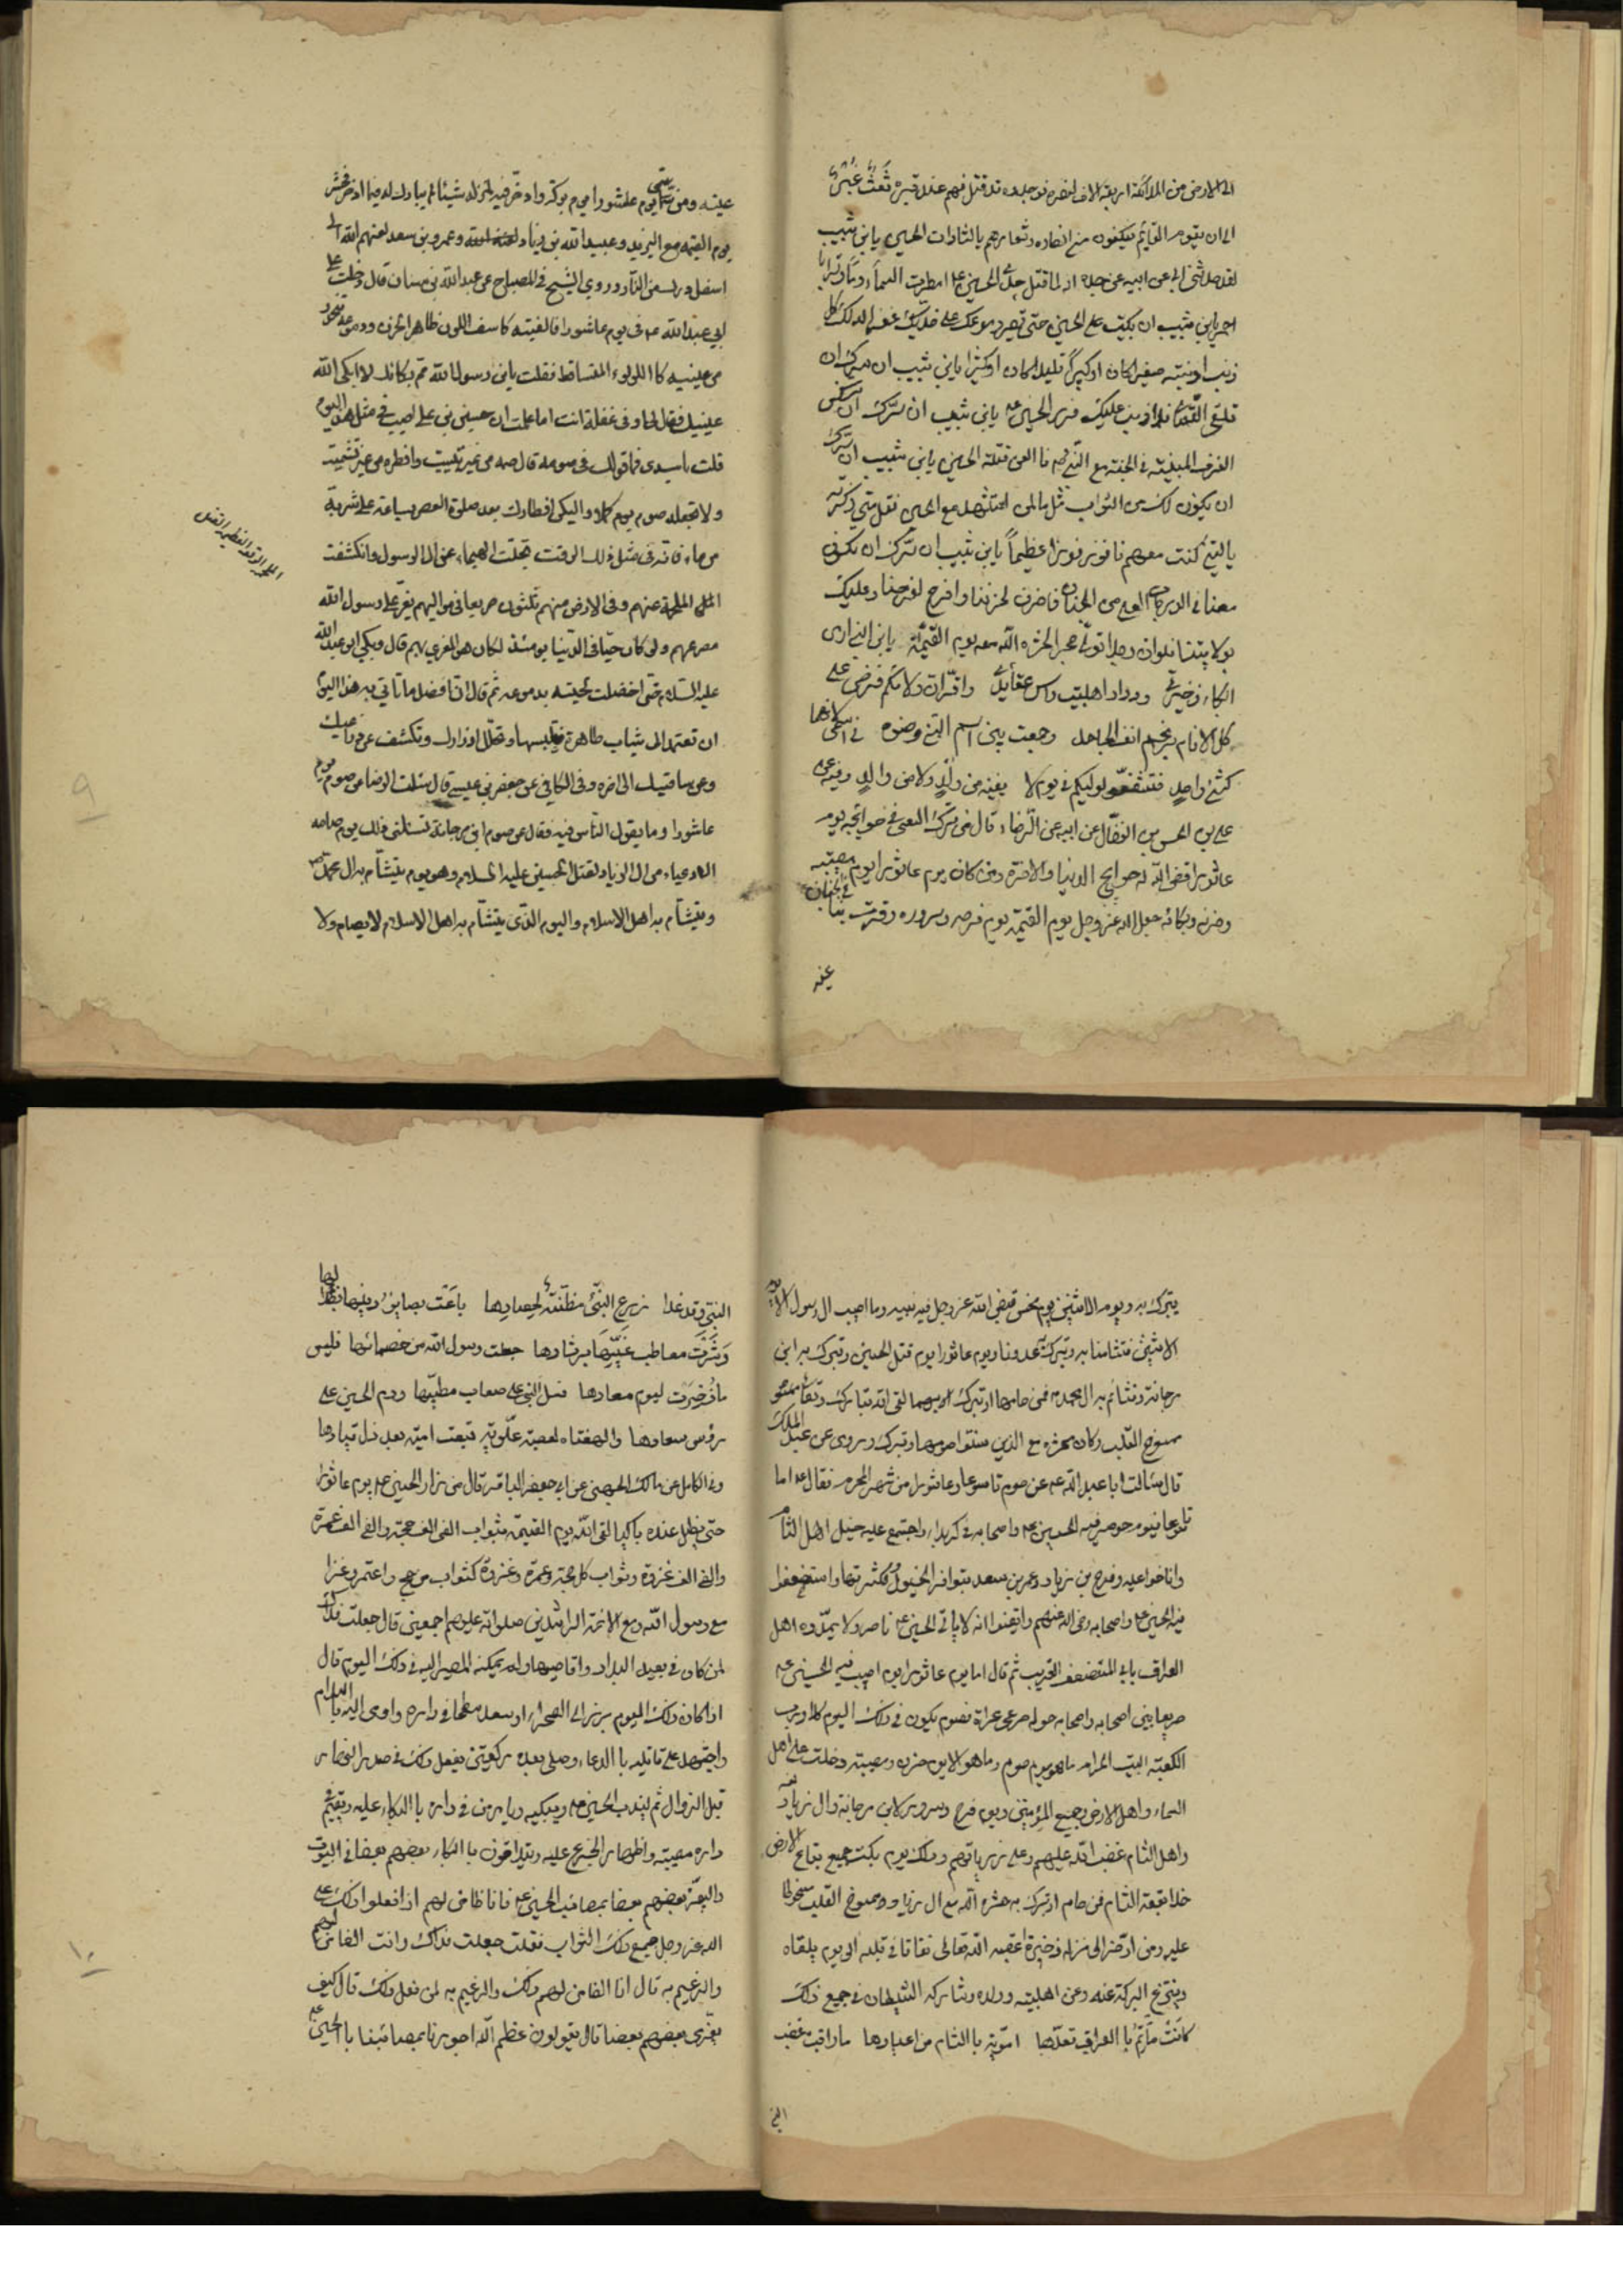 الى الارض من الملائكة اربعة الاف لنصره فوجدوه قد قتل فهم عند قبره شُعْثٌ غُبْرٌ
الى ان يقوم القايم فيكونون من انصاره وشعارهم يالثارات الحسين يابن شبيب
لقد حدثنى ابى عن ابيه عن جده انه لما قتل جدى الحسين ع امطرت السماء دما وترابا
احمر يابن شبيب ان بكيت على الحسين حتى تصير دموعك على خديك غفر الله لك كل
ذنب اذنبته صغيرا كان او كبيرا قليلا كان او كثيرا يابن شبيب ان سرك ان
تلقى الله ولا ذنب عليك فزر الحسين ع يابن شبيب ان سرك ان تسكن
الغرف المبنية فى الجنة مع النبى ص فالعن قتلة الحسين يابن شبيب ان سرك
ان يكون لك من الثواب مثل ما لمن استشهد مع الحسين فقل متى ذكرته
يا ليتنى كنت معهم فافوز فوزا عظيماً يابن شبيب ان سرك ان تكون
معنا فى الدرجات العلى من الجنان فاحزن لحزننا وافرح لفرحنا وعليك
بولايتنا فلو ان رجلا تولى حجرا لحشره الله معه يوم القيمة يابن انى ارى
البكاء ذخيرتى وودداد اهلبيت راس عقايدى واقرّ ان ولائكم فرض على
كل الانام برغم انف الجاهل وجعت بين اسم النبى وضوه
كشئ واحدٍ فتشفعو لوليكم فى يوم لا يغنيه من ولدٍ ولا من والدٍ وفيه عن
على بن الحسن بن الفضّال عن ابيه عن الرضاء قال من ترك السعى فى حوائجه يوم
عاشورا قضى الله له حوايج الدنيا والاخرة ومن كان يوم عاشورا يوم مصيبته
وحزنه وبكائه جعل الله عز وجل يوم القيمة يوم فرحه وسروره وقرت بنا فى الجنان
عينه
عينه ومن سمى يوم عاشورا يوم بركة وادخر فيه لمنزله شيئا لم يبارك له فيما ادخر وحشر
يوم القيمة مع اليزيد وعبيد الله بن زياد لعنه الله وعمر بن سعد لعنهم الله الى
اسفل درك من النار وروى الشيخ فى المصباح عن عبدالله بن سنان قال دخلت على
ابى عبدالله ع فى يوم عاشورا فالفيته كاسف اللون ظاهر الحزن ودموعه تنحدر
من عينيه كا اللولوء المتساقط فقلت يابن رسول الله مم بكائك لا ابكى الله
عينيك فقال لى اوفى غفلة انت اما علمت ان حسين بن على اصيب فى مثل هذا اليوم
قلت يا سيدى فما قولك فى صومه قال صمه من غير تبييت وافطره من غير تشميت
ولا تجعله صوم يوم كملا واليكن افطارك بعد صلوة العصر بساعة على شربة
من ماء فانه فى مثل ذلك الوقت تجلت الهيجاء عن ال الرسول وانكشفت
الملحمة عنهم وفى الارض منهم ثلثون صريعا فى مواليهم يعز على رسول الله
مصرعهم ولو كان حيّا فى الدنيا يومئذ لكان هو المعزى بهم قال وبكى ابو عبد الله
عليه السلام حتى اخضلت لحيته بدموعه ثم قال ان افضل ما تاتى به هذا اليوم
ان تعتمد الى ثياب طاهرة فتلبسها وتحلل ازرارك وتكشف عن ذراعيك
وعن ساقيك الى اخره وفى الكافى عن جعفر بن عيسى قال سئلت الرضا عن صوم يوم
عاشورا وما يقول الناس فيه فقال عن صوم ابن مرجانة تسئلنى ذلك يوم صامه
الادعياء من ال الزياد لقتل الحسين عليه السلم وهو يوم يتشأم به ال محمد ص
ويتشأم به اهل الاسلام واليوم الذى يتشأم به اهل الاسلام لا يصام ولا
٩
يتبرك به ويوم الاثنين يوم نحس قبض الله عز وجل فيه نبيه وما اصيب ال رسول الا يوم
الاثنين فتشامنا به وتبرك به عدونا ويوم عاشورا يوم قتل الحسين وتبرك به ابن
مرجانة وتشائم به ال محمد ص فمن صامها او تبرك بهما لقى الله تبارك وتعالى ممسوخ
ممسوخ القلب وكان محشره مع الذين سنوا صومها وتبرك وروى عن عبد الملك
قال سئالت ابا عبد الله ع عن صوم تاسوعا وعاشورا من شهر المحرم فقال ع اما
تاسوعا فيوم حوصر فيه الحسين ع واصحابه فى كربلاء واجتمع عليه خيل اهل الشام
واناخوا عليه وفرح بن زياد وعمر بن سعد بتوافر الخيول وكثرتها واستضعفوا
فيه الحسين ع واصحابه رضى الله عنهم وايقنوا انه لا ياتى الحسين ع ناصر ولا يمدّوه اهل
العراق بابى المستضعف الغريب ثم قال اما يوم عاشورا يوم اصيب فيه الحسين ع
صريعا بين اصحابه واصحابه حوله صرعى عراة فصوم يكون فى ذلك اليوم كلا ورب
الكعبة البيت الحرام ما هو يوم صوم وما هو الا يوم حزن ومصيبة دخلت على اهل
السماء واهل الارض وجميع المؤمنين ويوم فرح وسرور لابن مرجانة وال زياد
واهل الشام غضب الله عليهم وعلى ذرياتهم وذلك يوم بكت جميع بقاع الارض
خلا بقعة الشام فمن صام او تبرك به حشره الله مع ال زياد وممسوخ القلب مسخوطا
عليه ومن ادخر الى منزله ذخيرة اعقبه الله تعالى نفاقا فى قلبه الى يوم يلقاه
وينتزع البركة عنه وعن اهلبيته وولده وشاركه الشيطان فى جميع ذلك
كَانَتْ مآتِمُ با العراق تعدّها امويّة با الشام من اعيادها ما راقبت غضب
النبى
النبى وقد غدا زرع النبىّ مظنّةً لحصادِها باعَت بصايرَ دينِها
جعلت رسول الله من خصمائها فليس
ما ذُخِرَت ليوم معادها نسل النبى على صعاب مطيّها ودم الحسين على
رؤس صعادها والهفتاه لعصبة علويّة تبعت اميّة بعد ذل قيادها
وفى الكامل عن مالك الجهنى عن ابى جعفر الباقر قال من زار الحسين ع يوم عاشورا
حتى يظل عنده باكيا لقى الله يوم القيمة بثواب الفى الف حجة والفى الف عمرة
والفى الف غزوة وثواب كل حجة وعمرة وغزوة كثواب من حج واعتمر وغزا
مع رسول الله ومع الائمة الراشدين صلوات الله عليهم اجمعين قال جعلت فداك
لمن كان فى بعيد البلاد واقاصيها ولم يمكنه المصير اليه فى ذلك اليوم قال
اذا كان ذلك اليوم برز الى الصحراء او صعد سطحا فى داره واومى اليه بالسلام
واجتهد على قاتليه با الدعاء وصلى بعده ركعتين يفعل ذلك فى صدر النهار
قبل الزوال ثم ليندب الحسين ع ويبكيه ويامر من فى داره با البكاء عليه ويقيم فى
داره مصيبته واظهار الجزع عليه ويتلاقون با البكاء بعضهم بعضا فى البيوت
واليعزّ بعضهم بعضا بمصائب الحسين ع فانا ضامن لهم اذا فعلوا ذلك على
الله عز وجل جميع ذلك الثواب فقلت جعلت فداك وانت الضامن لهم
والزعيم به قال انا الضامن لهم ذلك والزعيم به لمن فعل ذلك قال كيف
يعزى بعضهم بعضا قال يقولون عظم الله اجورنا بمصائبنا با الحسين ع
١٠